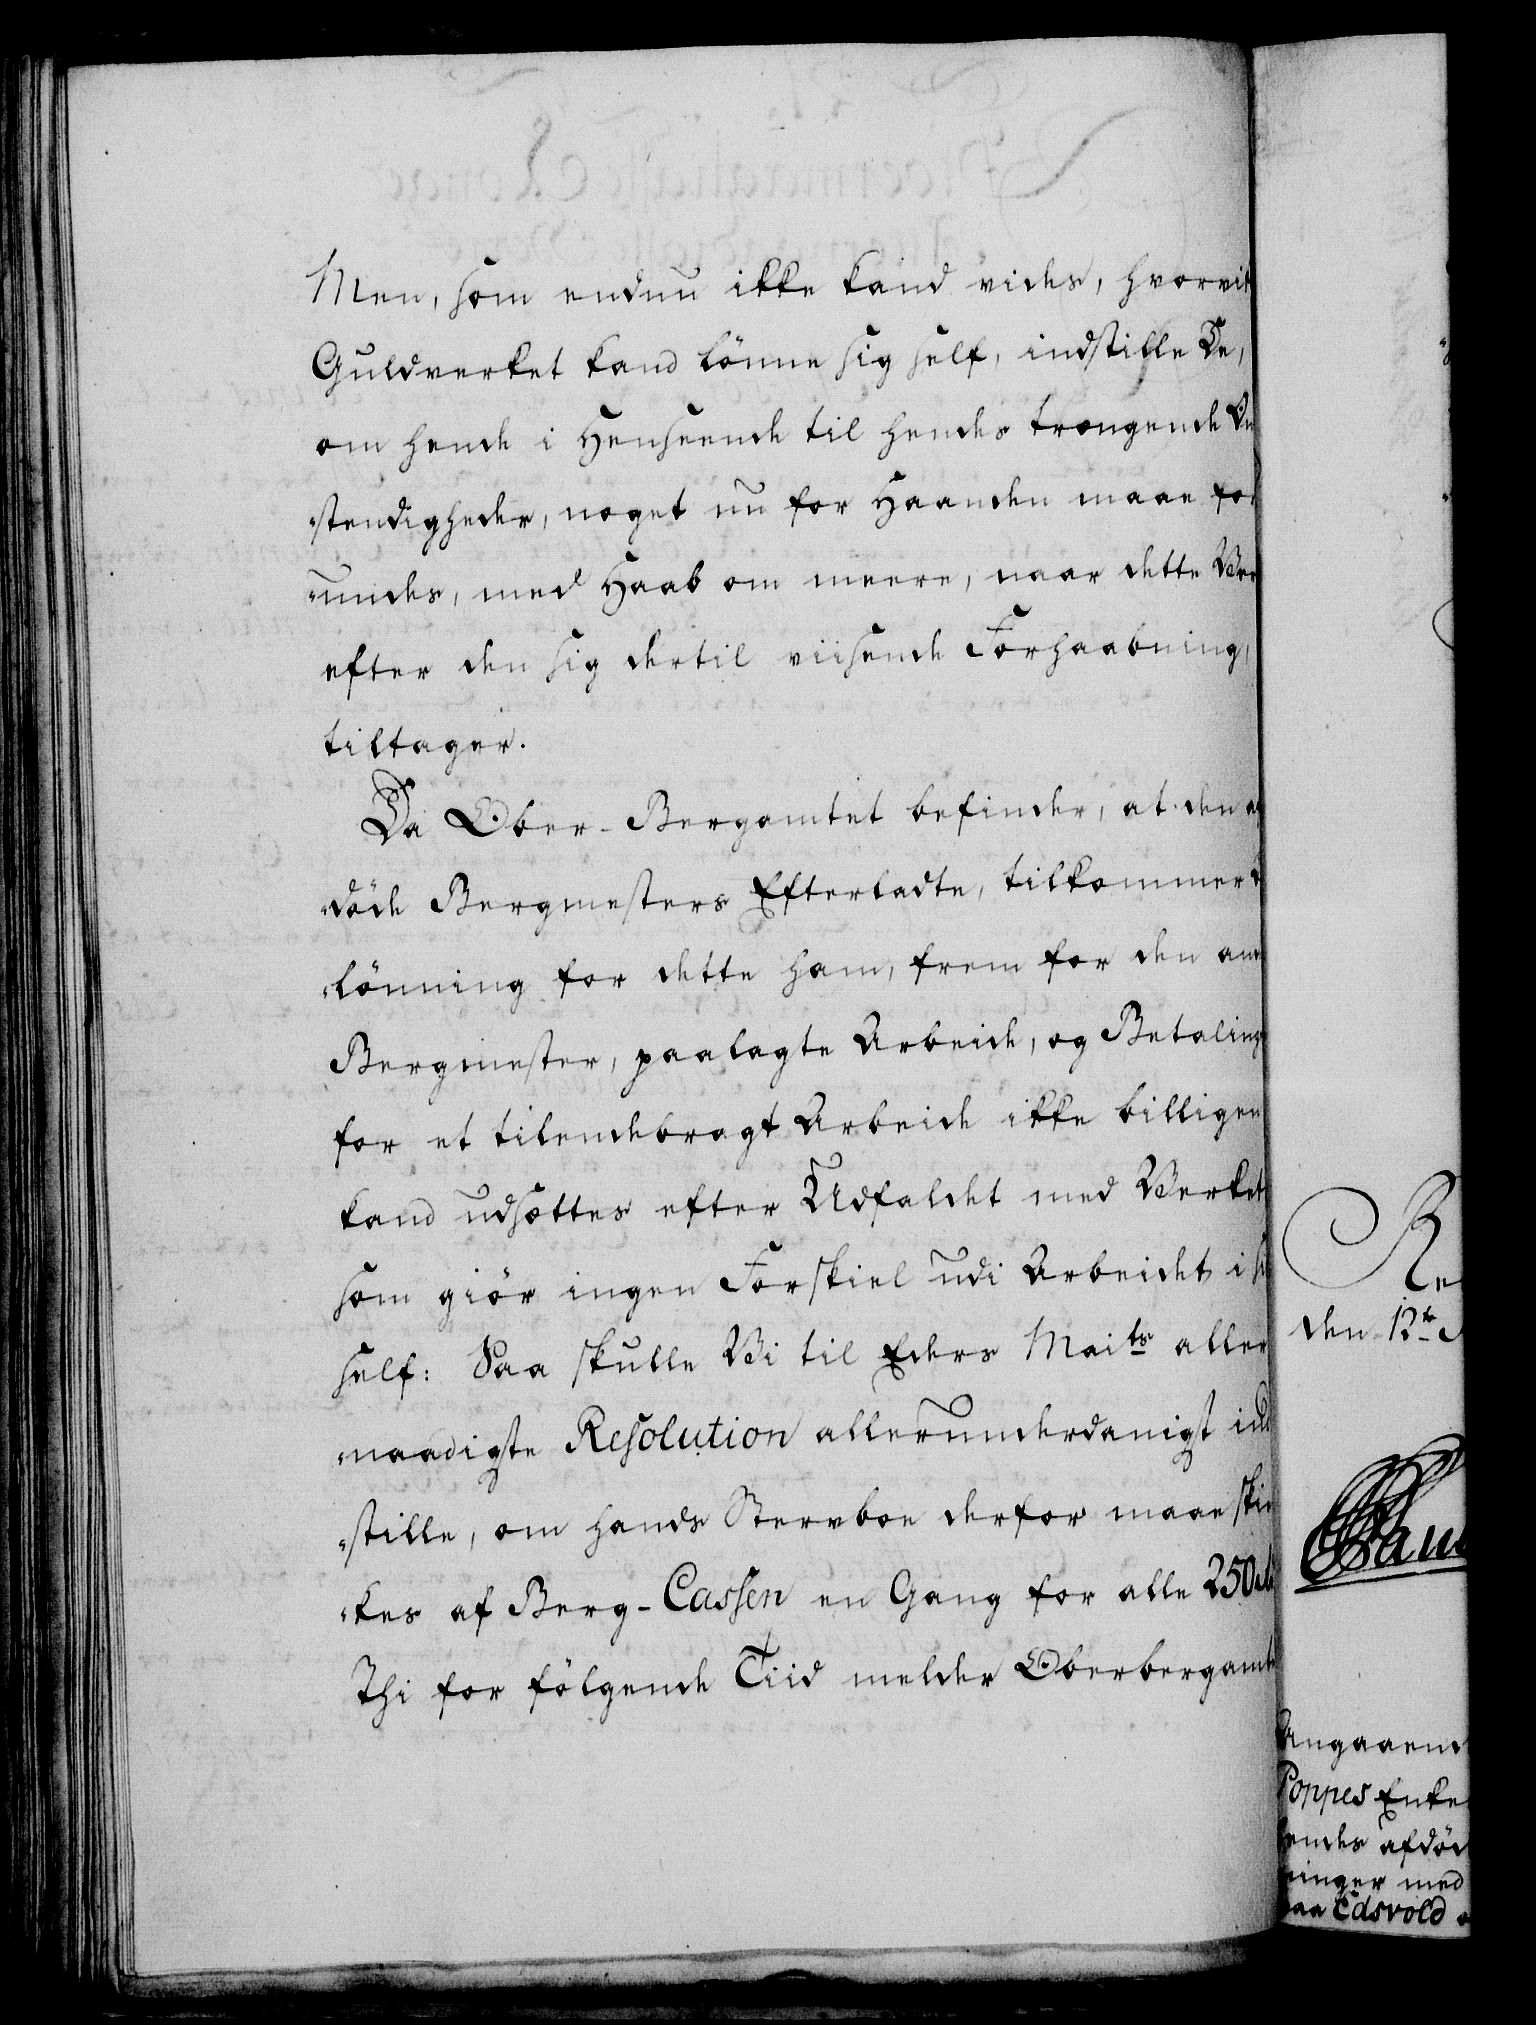 Men, som endnu ikke kand vides, hvorvit
Guldverket kand lönne sig self, indstille De,
om hende i Henseende til hendes trængende Um
„stendigheder, noget nu for Haanden maae for
„undes, med Haab om meere, naar dette Ver
efter den sig dertil viisende Forhaabning,
tiltager.
Da Ober-Bergamtet befinder, at den af
„döde Bergmesters Efterladte, tilkommer
„lönning for dette ham, frem for den an
Bergmester, paalagte Arbeide, og Betaling
for et tilendebragt Arbeide ikke billigen
kand udsættes efter Udfaldet med Verket
som giör ingen Forskiel udi Arbeidet i sig
self: Saa skulle Vi til Eders Maits aller
„naadigste Resolution allerunderdanigst ind
„stille, om hands Stervboe derfor maae skien
„kes af Berg-Cassen en Gang for alle 250 rd
Thi for fölgende Tiid melder Oberbergamte
Re
den 12te
Angaaend
Poppes Enke
hendes afdöd
ninger med
paa Edsvold